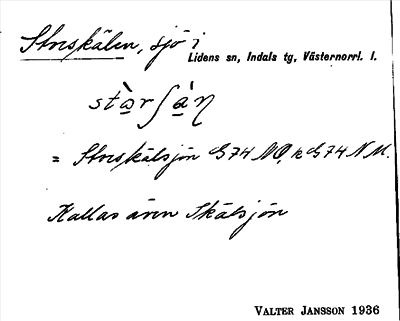 Storskälen, sjö i
Lidens sn, Indals tg, Västernorrl. l.
= Storskälsjön G74 NO, k G74 N M.
Kallas även Skälsjön
VALTER JANSSON 1936